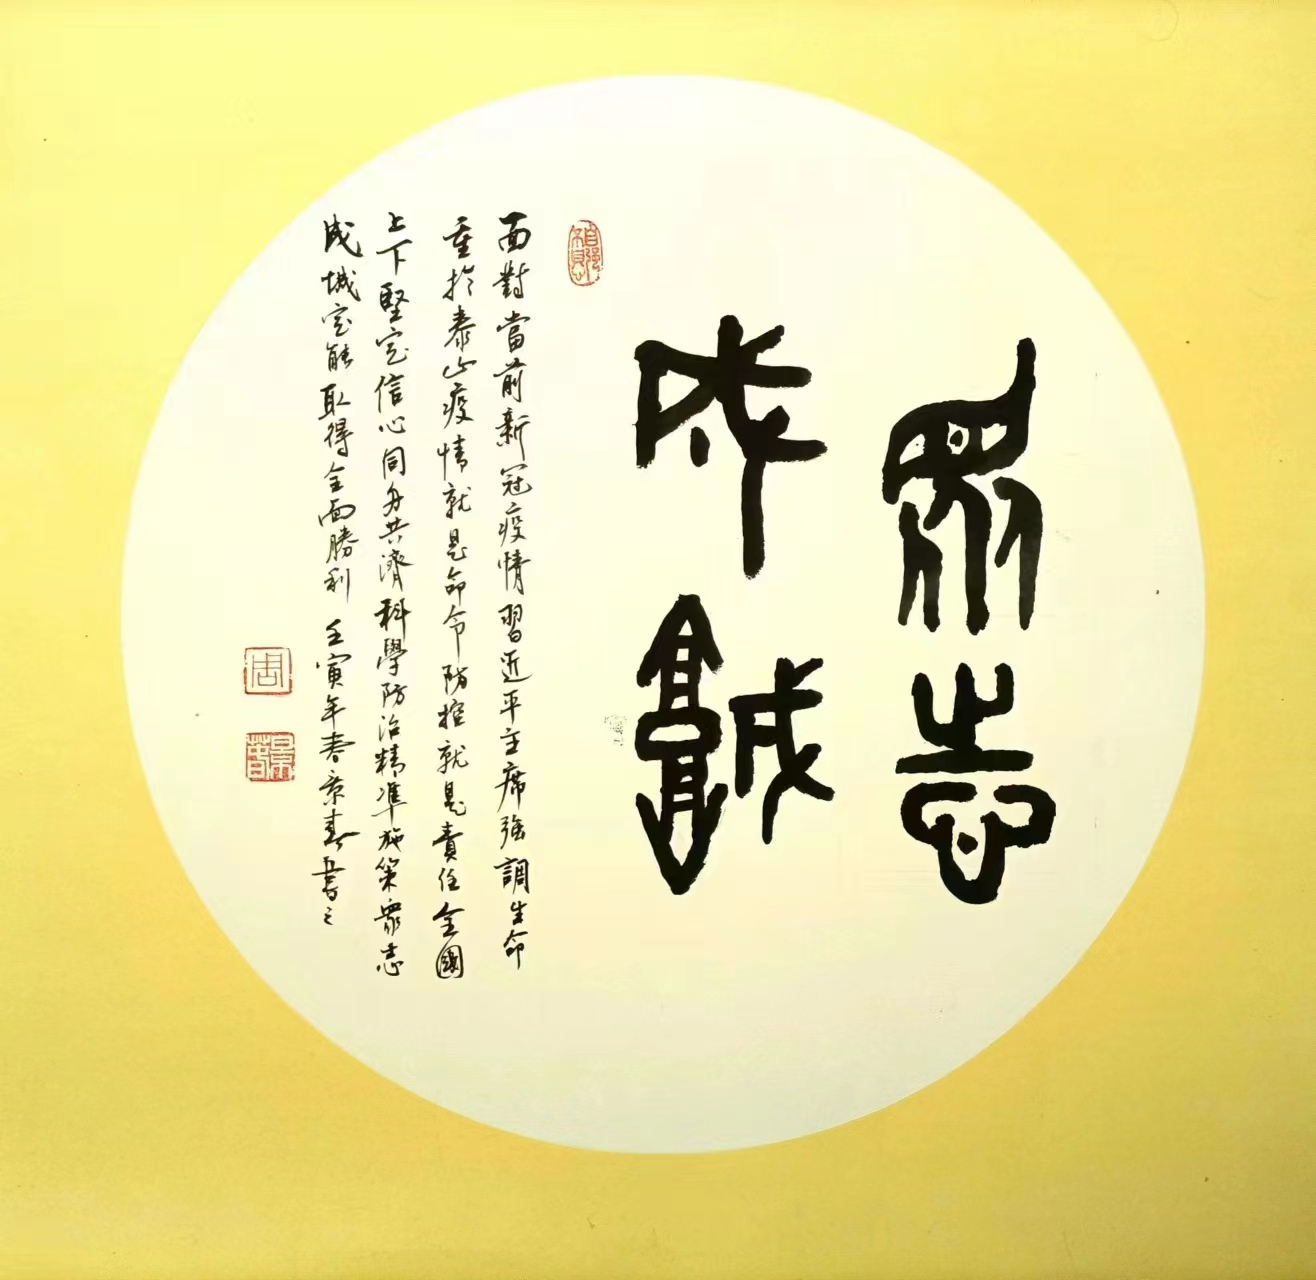 衆志
成城
自強不息
面對當前新冠疫情習近平主席強調生命
重扵泰山疫情就是命令防控就是責任全國
上下堅定信心同舟共濟科學防治精準施策衆志
成城定能取得全面勝利 壬寅年春景春書之
周
景春